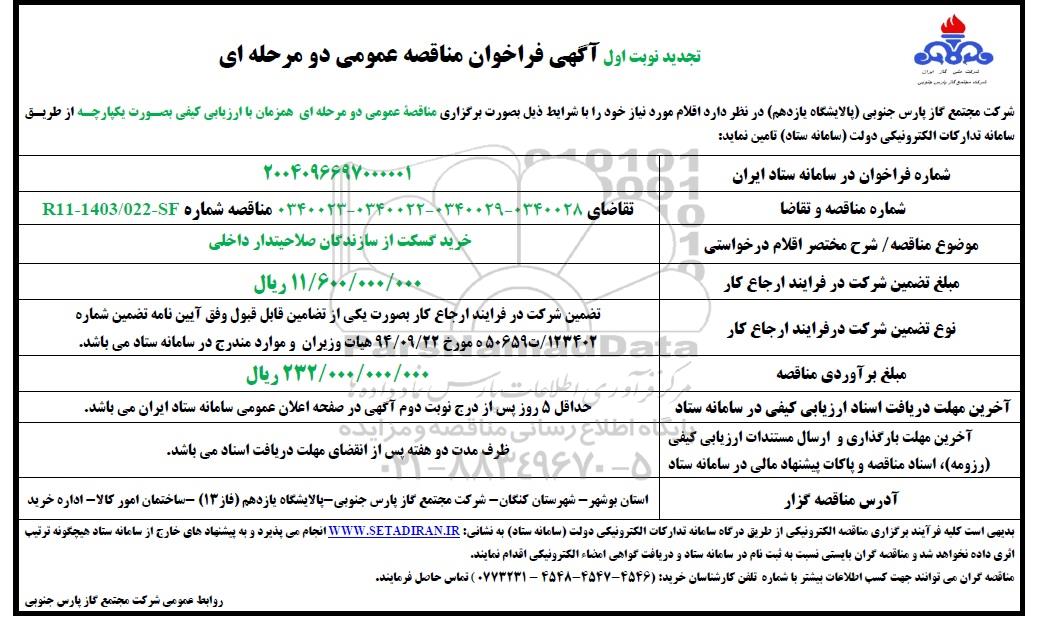 شرکت ملی گاز ایران
شرکت مجتمع گاز پارس جنوبی
تجدید نوبت اول آگهی فراخوان مناقصه عمومی دو مرحله ای
شرکت مجتمع گاز پارس جنوبی (پالایشگاه یازدهم) در نظر دارد اقلام مورد نیاز خود را با شرایط ذیل بصورت برگزاری مناقصهٔ عمومی دو مرحله ای همزمان با ارزیابی کیفی بصورت یکپارچه از طریق
سامانه تدارکات الکترونیکی دولت (سامانه ستاد) تامین نماید:
شماره فراخوان در سامانه ستاد ایران
۲۰۰۴۰۹۶۶۹۷۰۰۰۰۰۱
شماره مناقصه و تقاضا
تقاضای ۰۳۴۰۰۲۸-۰۳۴۰۰۲۹-۰۳۴۰۰۲۲-۰۳۴۰۰۲۳ مناقصه شماره R11-1403/022-SF
موضوع مناقصه/ شرح مختصر اقلام درخواستی
خرید گسکت از سازندگان صلاحیتدار داخلی
مبلغ تضمین شرکت در فرایند ارجاع کار
۱۱/۶۰۰/۰۰۰/۰۰۰ ریال
نوع تضمین شرکت درفرایند ارجاع کار
تضمین شرکت در فرایند ارجاع کار بصورت یکی از تضامین قابل قبول وفق آیین نامه تضمین شماره
۱۲۳۴۰۲/ت۵۰۶۵۹ ه مورخ ۹۴/۰۹/۲۲ هیات وزیران و موارد مندرج در سامانه ستاد می باشد.
مبلغ برآوردی مناقصه
۲۳۲/۰۰۰/۰۰۰/۰۰۰ ریال
آخرین مهلت دریافت اسناد ارزیابی کیفی در سامانه ستاد
حداقل ۵ روز پس از درج نوبت دوم آگهی در صفحه اعلان عمومی سامانه ستاد ایران می باشد.
آخرین مهلت بارگذاری و ارسال مستندات ارزیابی کیفی
(رزومه)، اسناد مناقصه و پاکات پیشنهاد مالی در سامانه ستاد
ظرف مدت دو هفته پس از انقضای مهلت دریافت اسناد می باشد.
آدرس مناقصه گزار
استان بوشهر– شهرستان کنگان– شرکت مجتمع گاز پارس جنوبی–پالایشگاه یازدهم (فاز۱۳) –ساختمان امور کالا– اداره خرید
بدیهی است کلیه فرآیند برگزاری مناقصه الکترونیکی از طریق درگاه سامانه تدارکات الکترونیکی دولت (سامانه ستاد) به نشانی: WWW.SETADIRAN.IR انجام می پذیرد و به پیشنهاد های خارج از سامانه ستاد هیچگونه ترتیب
اثری داده نخواهد شد و مناقصه گران بایستی نسبت به ثبت نام در سامانه ستاد و دریافت گواهی امضاء الکترونیکی اقدام نمایند.
مناقصه گران می توانند جهت کسب اطلاعات بیشتر با شماره تلفن کارشناسان خرید: (۴۵۴۶-۴۵۴۷-۴۵۴۸ – ۰۷۷۳۲۳۱) تماس حاصل فرمایند.
روابط عمومی شرکت مجتمع گاز پارس جنوبی
ParsNamadData
مرکز فرآوری اطلاعات پارس نماد داده ها
پایگاه اطلاع رسانی مناقصه و مزایده
۰۲۱-۸۸۳۴۹۶۷۰-۵